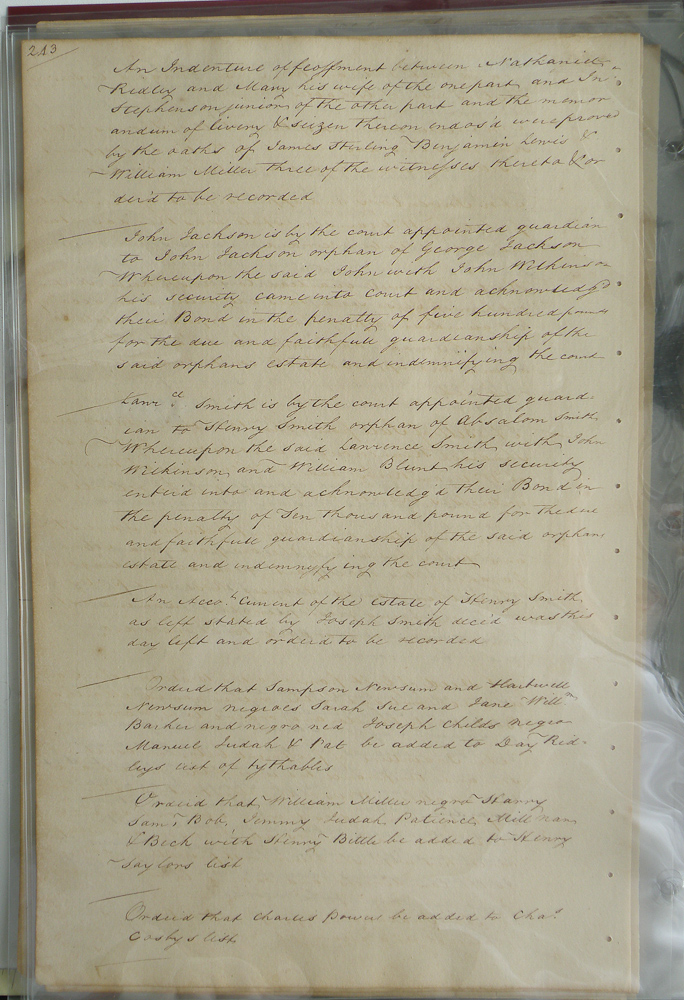 243
An Indenture of feoffment between Nathaniel
Ridley and Mary his wife of the one part and Jn°
Stephenson junior of the other part and the memor
andum of livery & seizen thereon endos'd were proved
by the oaths of James Stirling Benjamin Lewis &
William Miller three of the witnesses thereto & or
der'd to be recorded
John Jackson is by the court appointed guardian
to John Jackson orphan of George Jackson
Whereupon the said John with John Wilkinson
his security came into Court and acknowledg'd
their Bond in the penalty of five hundred pounds
for the due and faithfull guardianship of the
said orphans estate and indemnifying the court
Lawr ce Smith is by the court appointed guard
ian to Henry Smith orphan of Absalom Smith
Whereupon the said Lawrence Smith with John
Wilkinson and William Blunt his security
enterd into and acknowledg'd their Bond in
the penalty of Ten thousand pound for the due
and faithfull guardianship of the said orphans
estate and indemnifying the court
An Acco.t Current of the estate of Henry Smith
as left stated by Joseph Smith dec'd was this
day left and order'd to be recorded
Order'd that Sampson Newsum and Hartwell
Newsum negroes Sarah Sue and Jane Will.m
Barker and negro ned Joseph Childs negro
Manuel Judah & Pat be added to Day Rid-
leys list of tythables
Order'd that William Miller negro Harry
Sam.l Bob, Jemmy Judah Patience, Mill nan
& Beck with Henry Bittle be added to Henry
Taylors list
Order'd that Charles Powers be added to Cha.s
Cosbys list